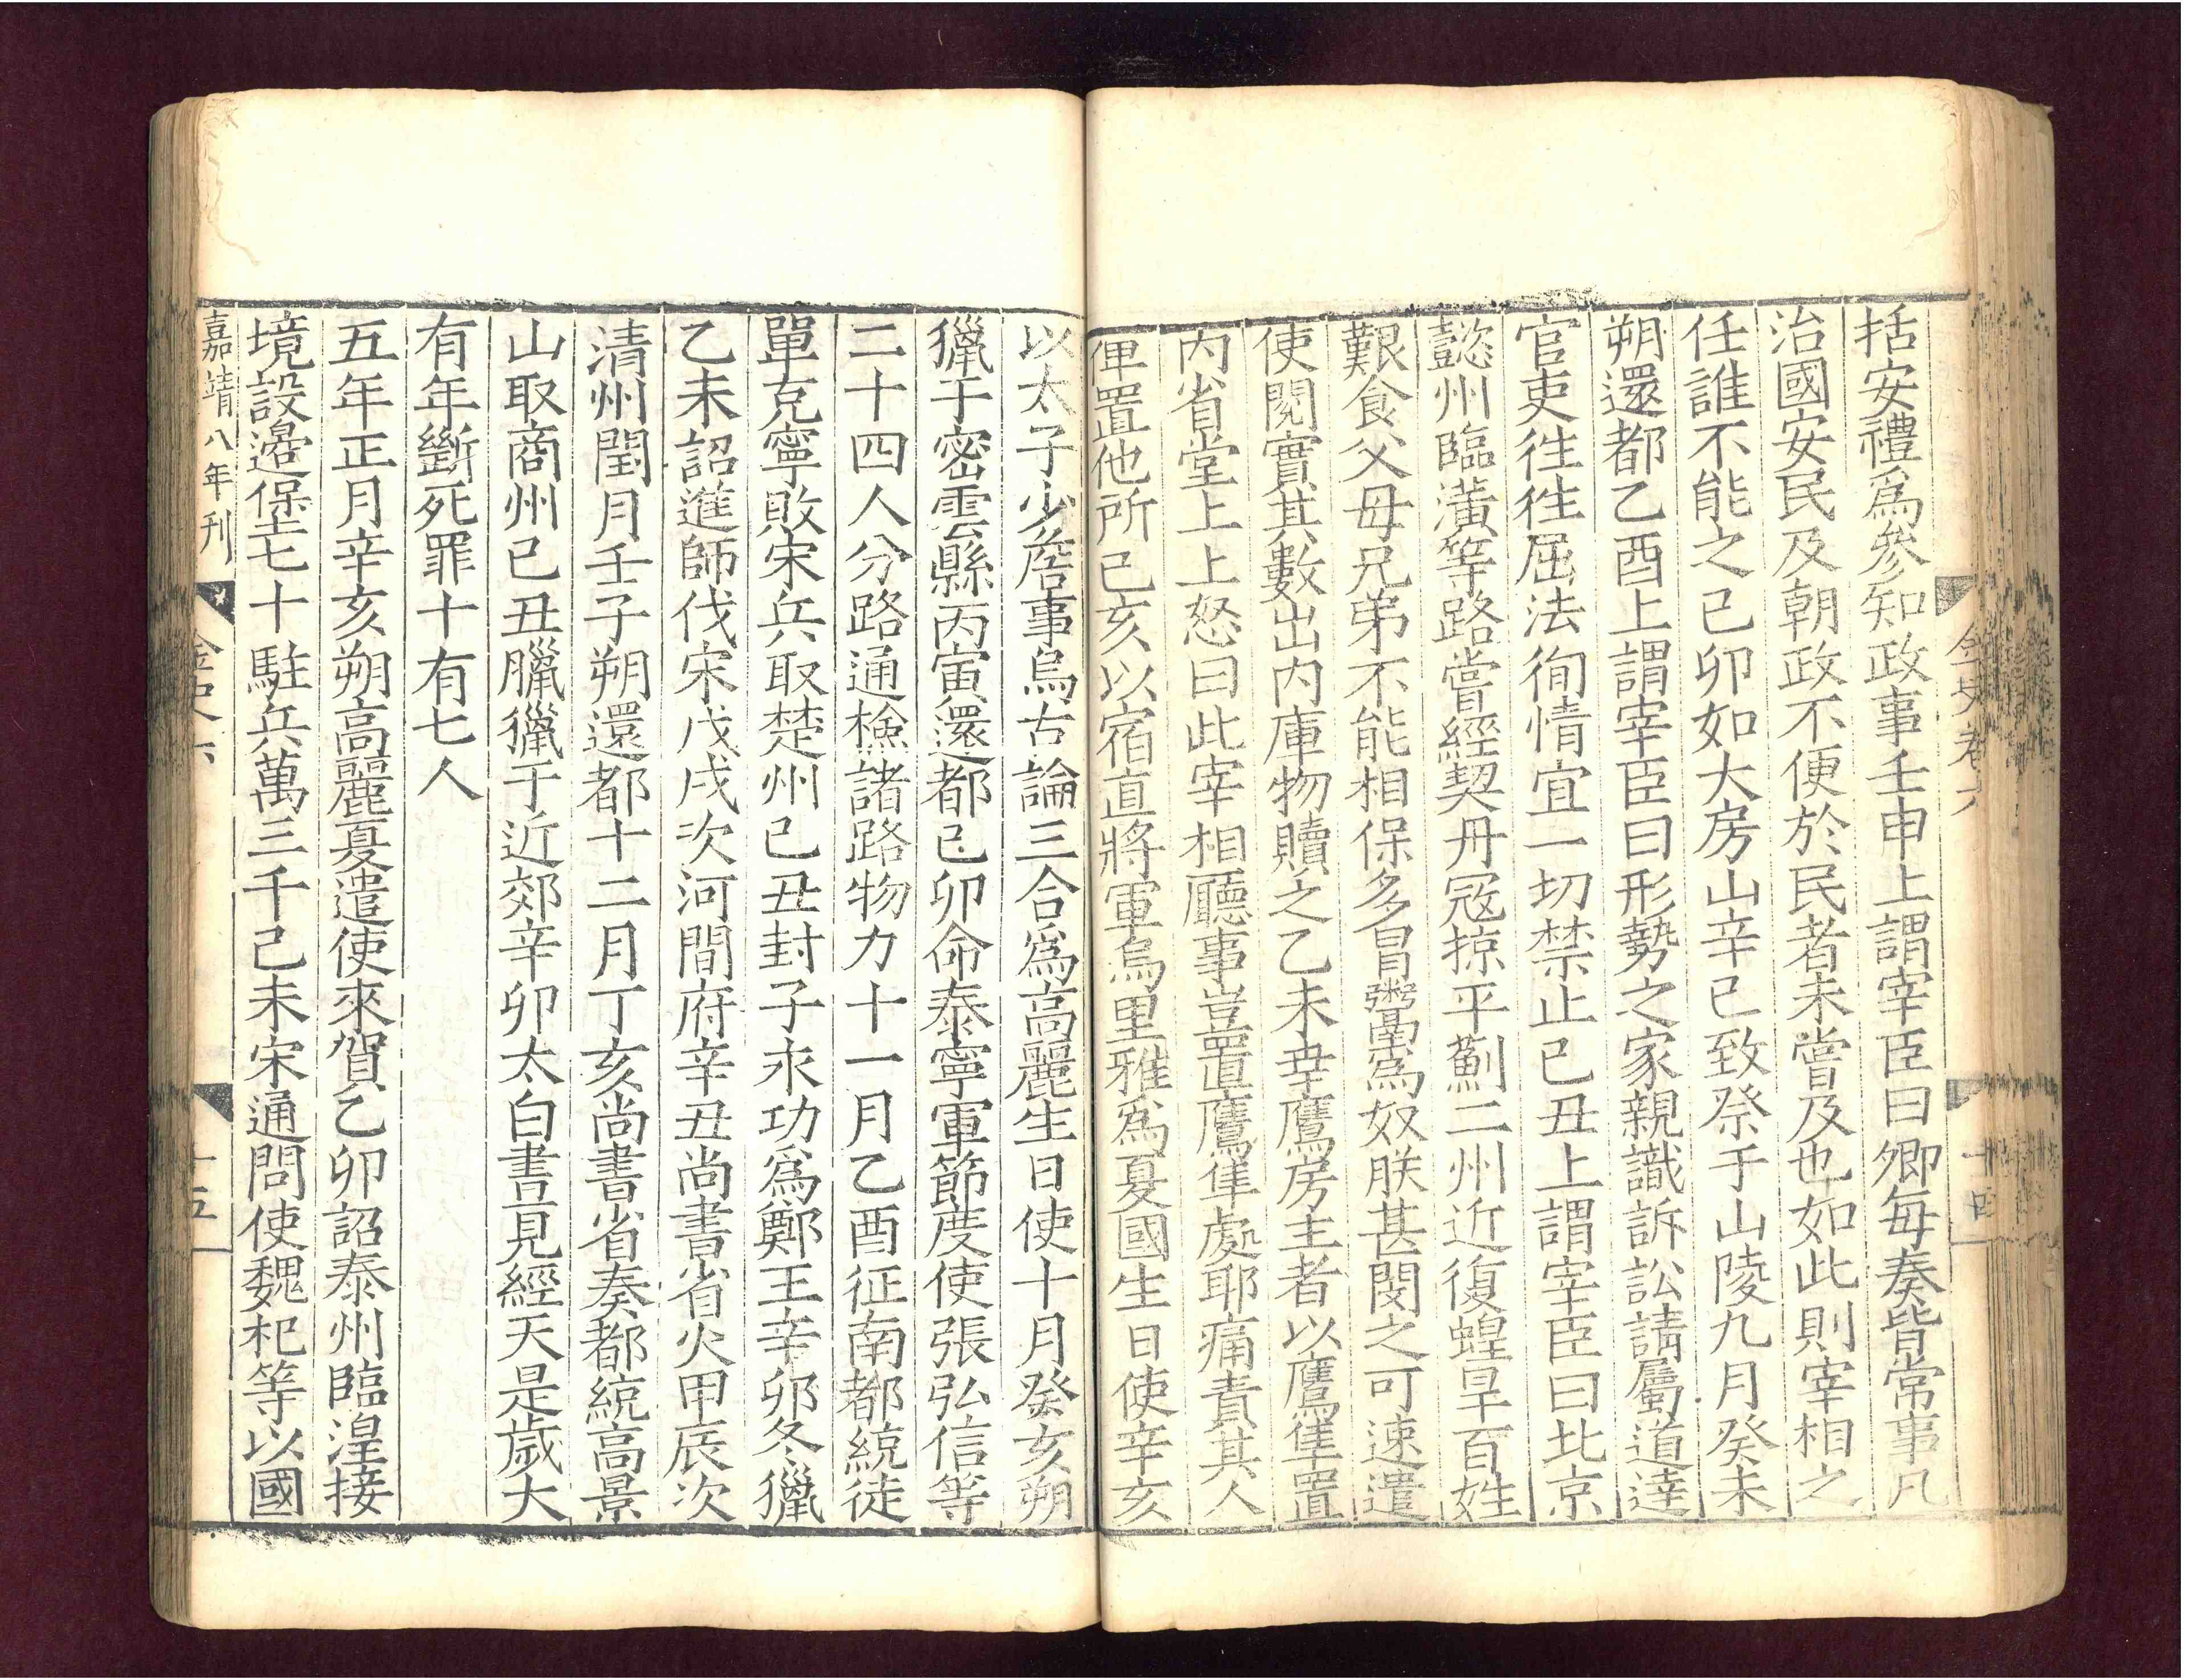 括安禮爲參知政事壬申上謂宰臣曰卿每奏皆常事凡
治國安民及朝政不便於民者未嘗及也如此則宰相之
任誰不能之己卯如大房山辛巳致祭于山陵九月癸未
朔還都乙酉上謂宰臣曰形勢之家親識訴訟請屬道達
官吏徃徃屈法徇情宜一切禁止己丑上謂宰臣曰北京
懿州臨潢等路嘗經契丹冦掠平薊二州近復蝗旱百姓
艱食父母兄弟不能相保多冒鬻爲奴朕甚閔之可速遣
使閱實其數出内庫物贖之乙未幸鷹房主者以鷹隼置
内省堂上上怒曰此宰相廳事豈置鷹隼處耶痛責其人
俾置他所己亥以宿直將軍烏里雅爲夏國生日使辛亥
以太子少詹事烏古論三合爲高麗生日使十月癸亥朔
獵于密雲縣丙寅還都己卯命泰寧軍節度使張弘信等
二十四人分路通檢諸路物力十一月乙酉征南都統徒
單克寧敗宋兵取楚州己丑封子永功爲鄭王辛卯冬獵
乙未詔進師伐宋戊戌次河間府辛丑尚書省火甲辰次
清州閏月壬子朔還都十二月丁亥尚書省奏都統高景
山取商州己丑臘獵于近郊辛卯太白晝見經天是歲大
有年斷死罪十有七人
五年正月辛亥朔高麗夏遣使來賀乙卯詔泰州臨潢接
境設邊堡七十駐兵萬三千己未宋通問使魏杞等以國
嘉靖八年刊
金史六
十五